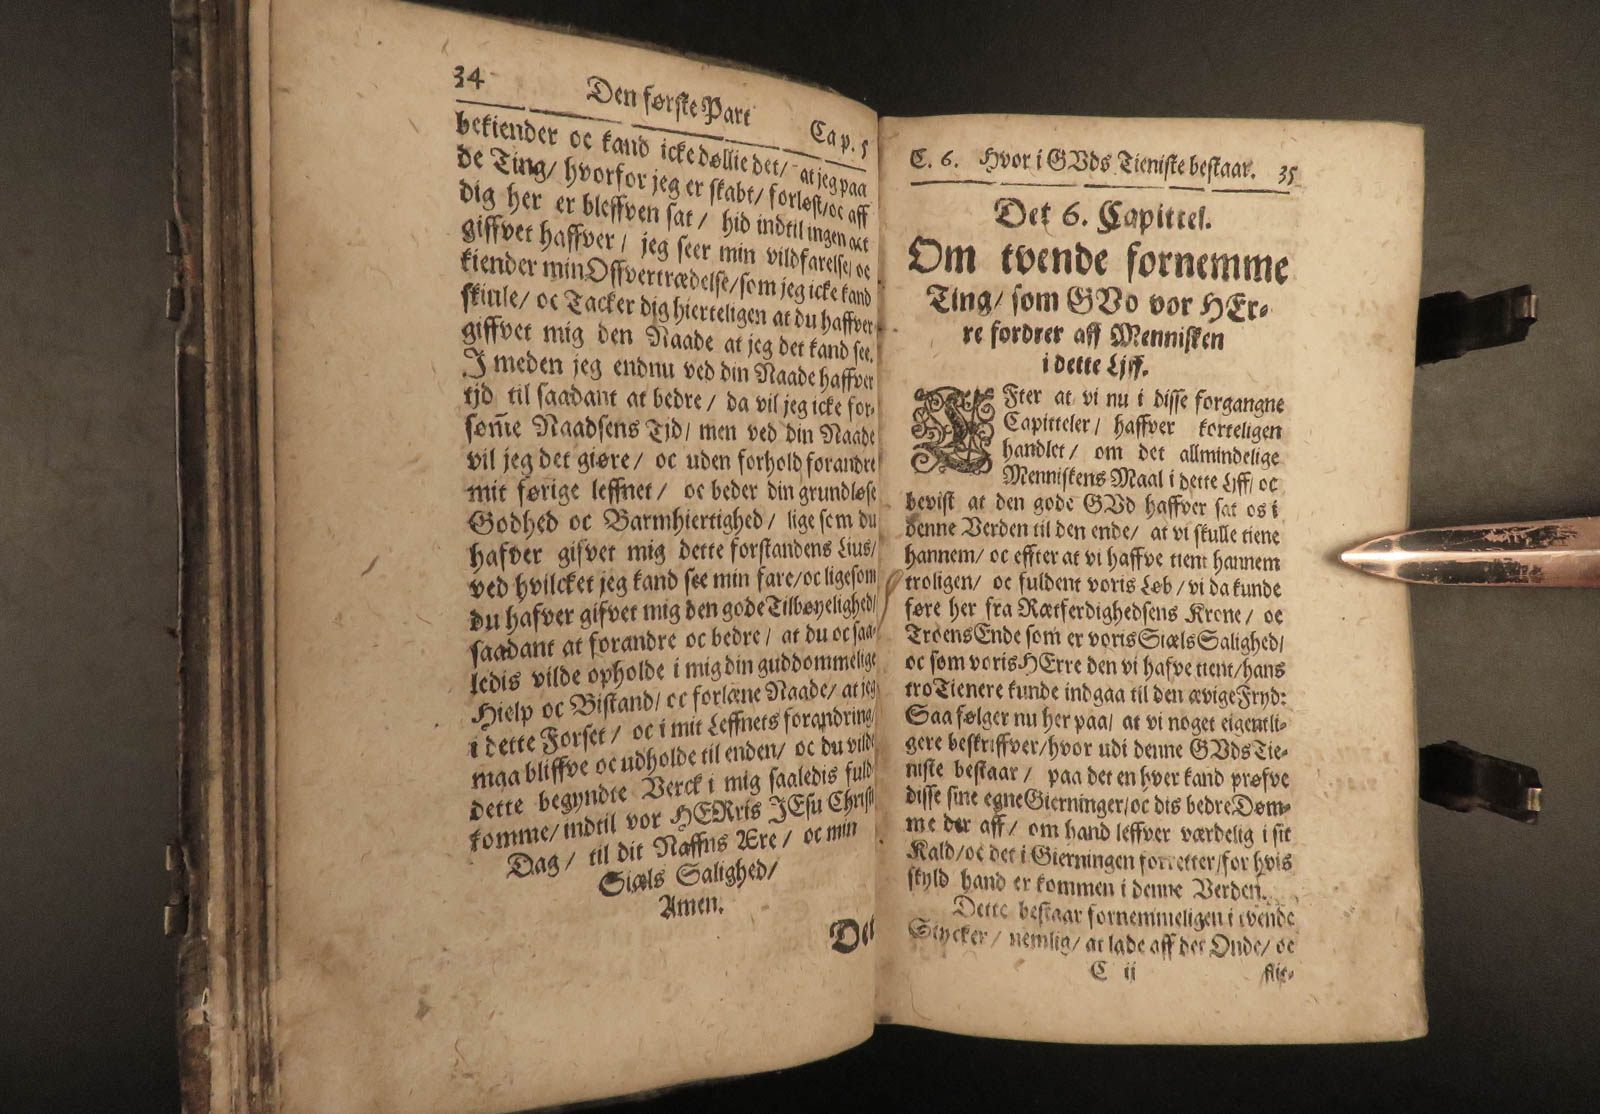 34 Den første Part Cap. 5
bekiender oc kand icke døllie det/ at jeg paa
de Ting/ hvorfor jeg er skabt/ forløst/ oc aff
dig her er bleffven sat/ hid indtil ingen act
giffvet haffver/ jeg seer min vildfarelse/ oc
kiender min Offvertrædelse/ som jeg icke kand
skiule/ oc Tacker dig hierteligen at du haffver
giffvet mig den Naade at jeg det kand see.
I meden jeg endnu ved din Naade haffver
tjd til saadant at bedre/ da vil jeg icke for-
søm̄e Naadsens Tjd/ men ved din Naade
vil jeg det giøre/ oc uden forhold forandre
mit førige leffnet/ oc beder din grundløse
Godhed oc Barmhiertighed/ lige som du
hafver gifvet mig dette forstandens Lius/
ved hvilcket jeg kand see min fare/ oc ligesom
du hafver gifvet mig den gode Tilbøyelighed/
saadant at forandre oc bedre/ at du oc saa-
ledis vilde opholde i mig din guddommelige
Hielp oc Bistand/ oc forlæne Naade/ at jeg
i dette Forset/ oc i mit Leffnets forandring/
maa bliffve oc udholde til enden/ oc du vilde
dette begyndte Verck i mig saaledis fuld
komme/ indtil vor HERris JEsu Christi
Dag/ til dit Naffns Ære/ oc min
Siæls Salighed/
Amen.
Det
C. 6. Hvor i GUds Tieniste bestaar. 35
Det 6. Capittel.
Om tvende fornemme
Ting/ som GUD vor HEr-
re fordrer aff Mennisken
i dette Ljff.
EFter at vi nu i disse forgangne
Capitteler/ haffver korteligen
handlet/ om det allmindelige
Menniskens Maal i dette Ljff/ oc
bevist at den gode GUd haffver sat os i
denne Verden til den ende/ at vi skulle tiene
hannem/ oc effter at vi haffve tient hannem
troligen/ oc fuldent voris Løb/ vi da kunde
føre her fra Rætferdighedsens Krone/ oc
Troens Ende som er voris Siæls Salighed/
oc som voris HErre den vi hafve tient/ hans
tro Tienere kunde indgaa til den ævige Fryd:
Saa følger nu her paa/ at vi noget eigentli-
gere beskriffver/ hvor udi denne GUds Tie-
niste bestaar/ paa det en hver kand prøfve
disse sine egne Gierninger/ oc dis bedre Døm-
me der aff/ om hand leffver værdelig i sit
Kald/ oc det i Gierningen forretter/ for hvis
skyld hand er kommen i denne Verden.
Dette bestaar fornemmeligen i tvende
Stycker/ nemlig/ at lade aff det Onde/ oc
C ij